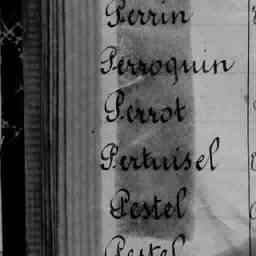 Perrin
Perroquin
Perrot
Pertuisel
Pestel
Pestel